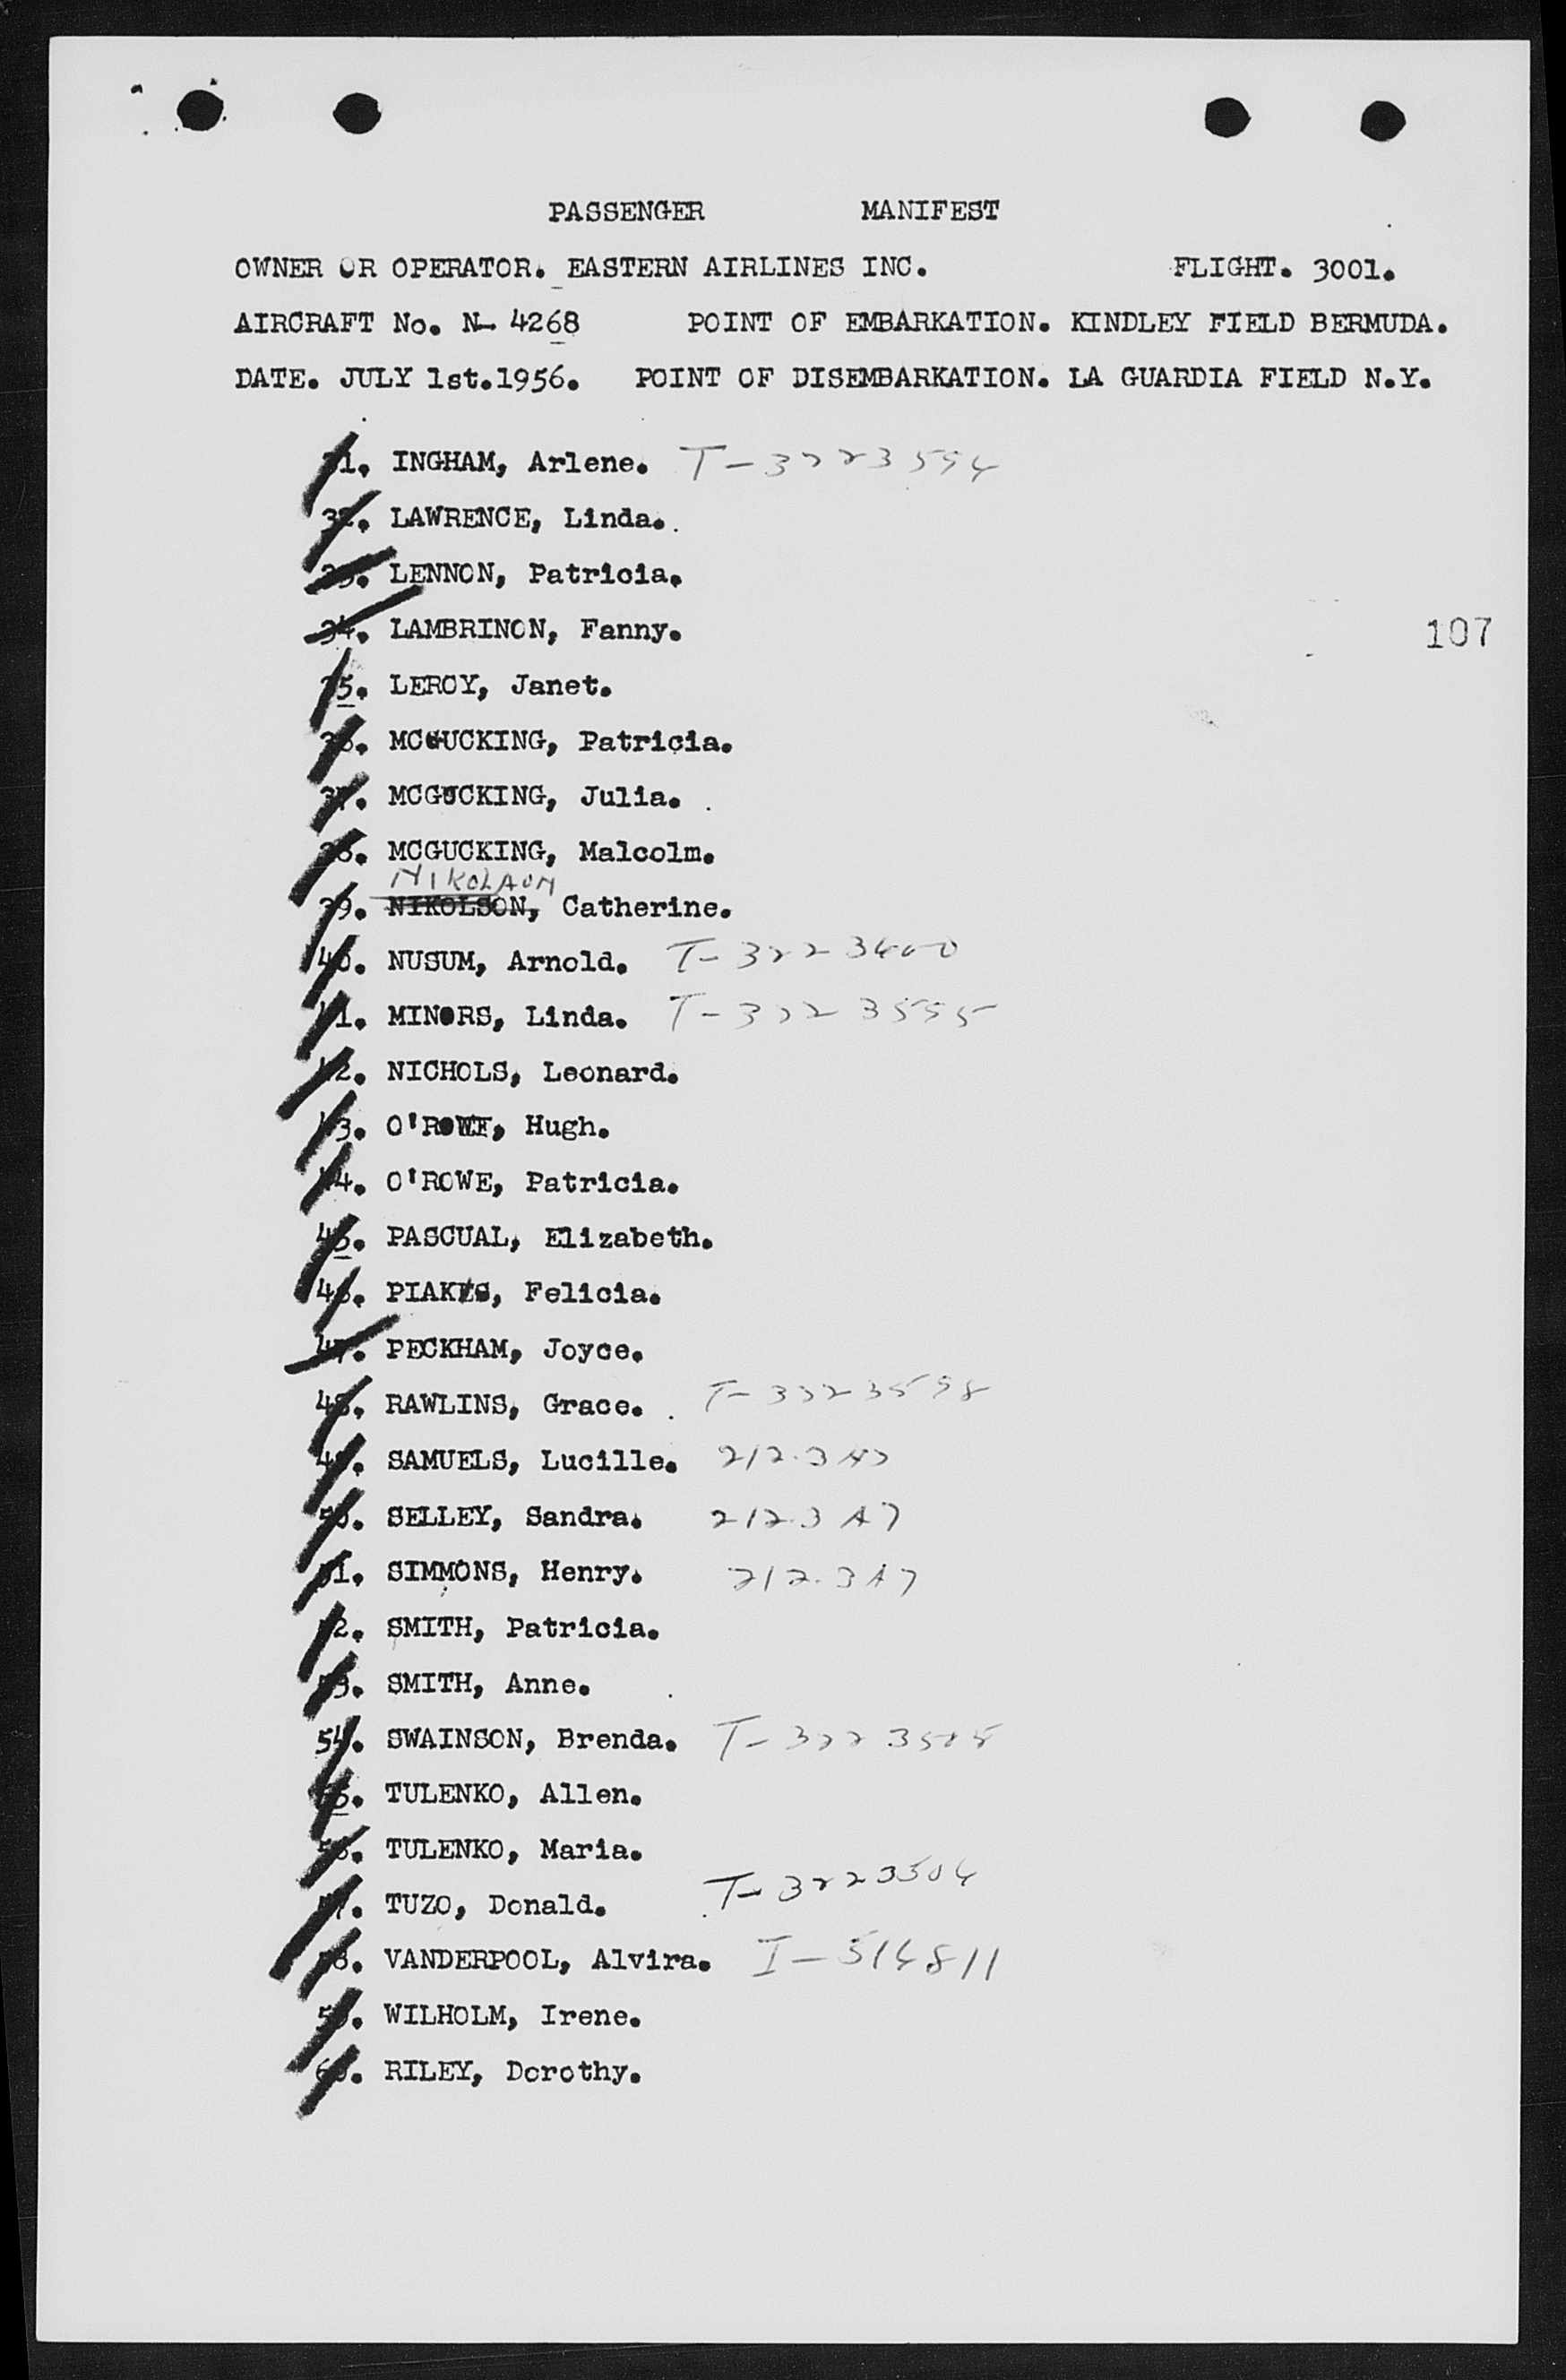 PASSENGER MANIFEST
OWNER OR OPERATOR. EASTERN AIRLINES INC. FLIGHT. 3001.
AIRCRAFT No. N- 4268 POINT OF EMBARKATION. KINDLEY FIELD BERMUDA.
DATE. JULY 1st.1956. POINT OF DISEMBARKATION. LA GUARDIA FIELD N.Y.
31. INGHAM, Arlene. T-3223554
32. LAWRENCE, Linda.
33. LENNON, Patricia.
34. LAMBRINON, Fanny.
107
35. LEROY, Janet.
36. MCGUCKING, Patricia.
37. MCGUCKING, Julia.
38. MCGUCKING, Malcolm.
NIKOLAON
39. NIKOLSON, Catherine.
40. NUSUM, Arnold. T-3223600
41. MINORS, Linda. T-3223555
42. NICHOLS, Leonard.
43. O'ROWE, Hugh.
44. O'ROWE, Patricia.
45. PASCUAL, Elizabeth.
46. Felicia.
47. PECKHAM, Joyce.
48. RAWLINS, Grace. T-3223558
49. SAMUELS, Lucille. 212.3A7
50. SELLEY, Sandra. 212.3 A7
51. SIMMONS, Henry. 212.3A7
52. SMITH, Patricia.
53. SMITH, Anne.
54. SWAINSON, Brenda.
55. TULENKO, Allen.
56. TULENKO, Maria.
57. TUZO, Donald. T-3223504
58. VANDERPOOL, Alvira. I-516811
59. WILHOLM, Irene.
60. RILEY, Dorothy.